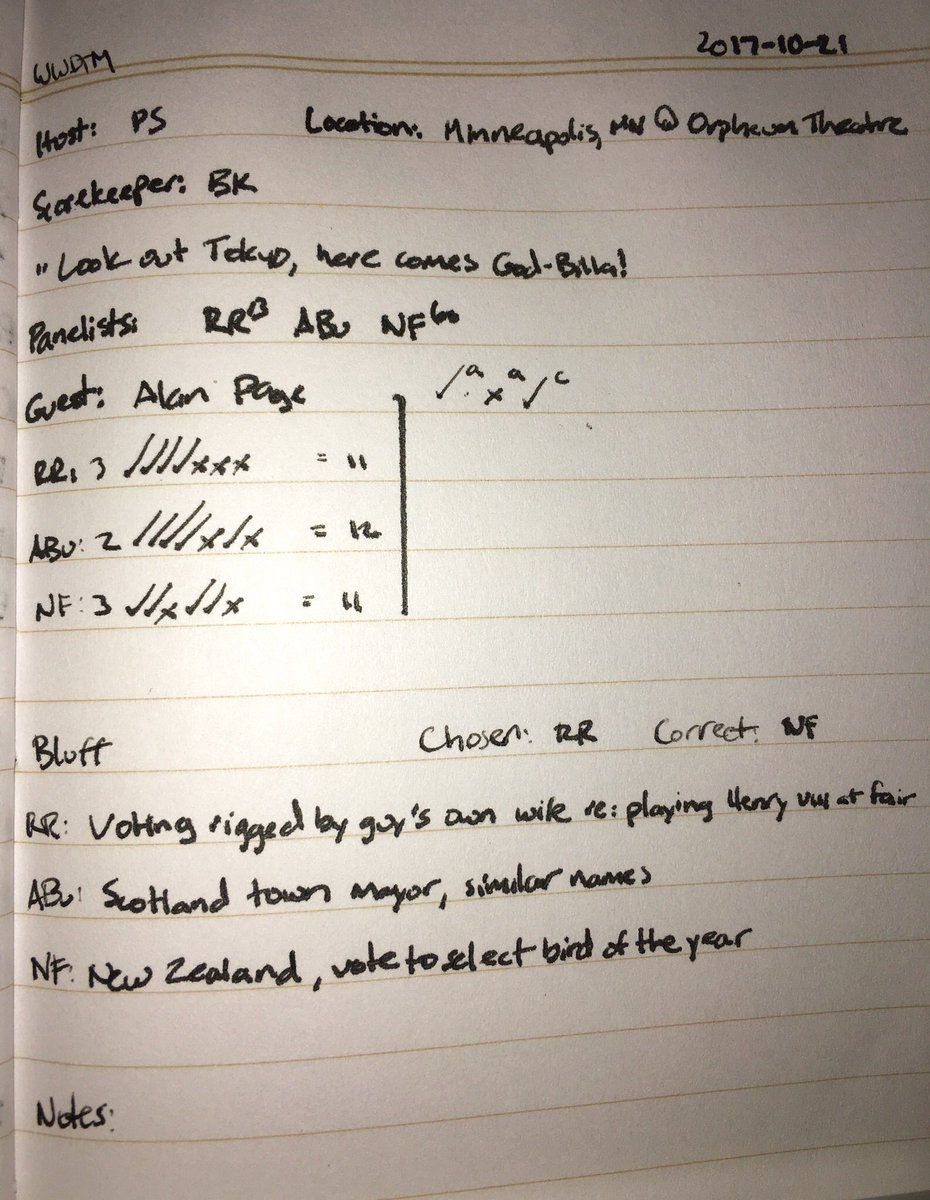 WWDTM 2017-10-21
Host: PS Location: Minneapolis, MN @ Orpheum Theatre
Scorekeeper: BK
"Look out Tokyo, here comes God-Billa!
Panelists: RR ABu NF
Guest: Alan Page ✓a x a ✓c
RR: 3 ✓✓✓✓xxx = 11
ABu: 2 ✓✓✓✓x✓x = 12
NF: 3 ✓✓x✓✓x = 11
Bluff Chosen: RR Correct: NF
RR: Voting rigged by guy's own wife re: playing Henry VIII at fair
ABu: Scotland town mayor, similar names
NF: New Zealand, vote to select bird of the year
Notes: